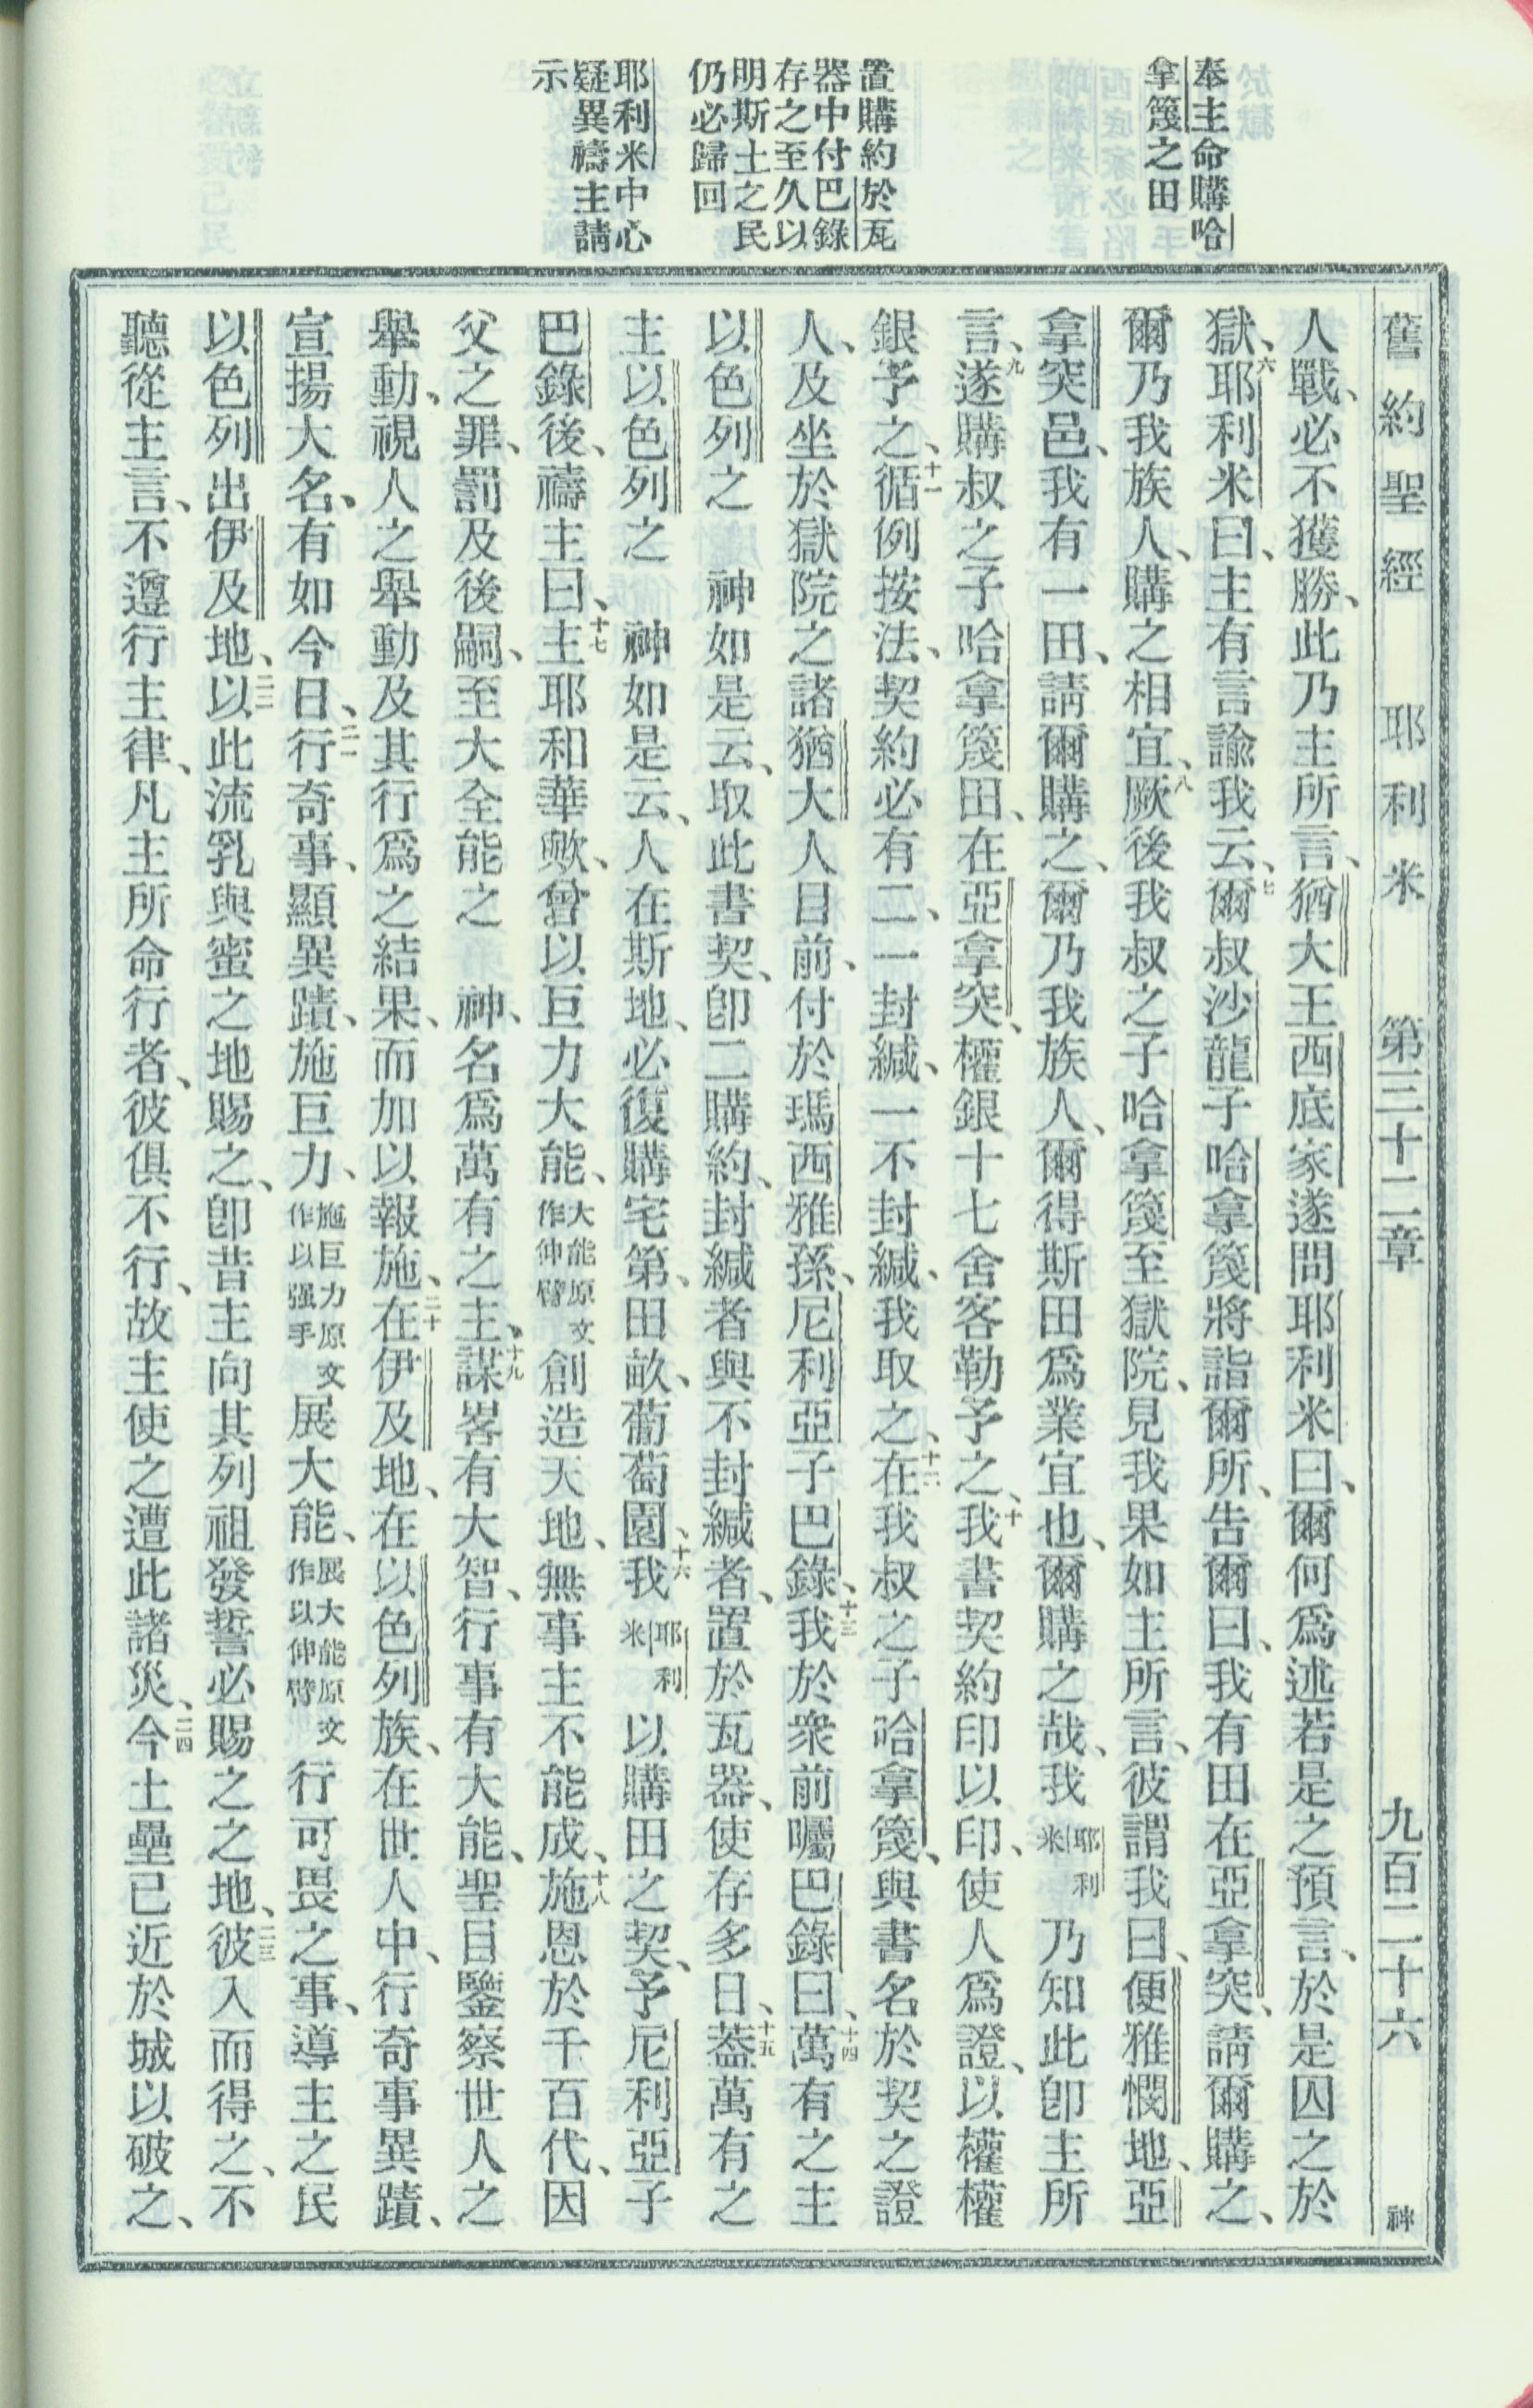 奉主命購哈
拿篾之田
置購約於瓦
器中付巴錄
存之至久以
明斯土之民
仍必歸回
耶利米中心
疑異禱主請
示
舊約聖經 耶利米 第三十二章 九百二十六 神
人戰、必不獲勝、此乃主所言、猶大王西底家遂問耶利米曰、爾何爲述若是之預言、於是囚之於
獄、六耶利米曰、主有言諭我云、七爾叔沙龍子哈拿篾將詣爾所、告爾曰、我有田在亞拿突、請爾購之、
爾乃我族人、購之相宜、八厥後我叔之子哈拿篾至獄院、見我果如主所言、彼謂我曰、便雅憫地、亞
拿突邑、我有一田、請爾購之、爾乃我族人、爾得斯田爲業宜也、爾購之哉、我耶利米乃知此卽主所
言、九遂購叔之子哈拿篾田、在亞拿突、權銀十七舍客勒予之、十我書契約印以印、使人爲證、以權權
銀予之、十一循例按法、契約必有二、一封緘、一不封緘、我取之、十二在我叔之子哈拿篾、與書名於契之證
人、及坐於獄院之諸猶大人目前、付於瑪西雅孫、尼利亞子巴錄、十三我於衆前囑巴錄曰、十四萬有之主
以色列之 神如是云、取此書契、卽二購約、封緘者與不封緘者、置於瓦器、使存多日、十五蓋萬有之
主以色列之 神如是云、人在斯地、必復購宅第、田畝、葡萄園、十六我耶利米以購田之契、予尼利亞子
巴錄後、禱主曰、十七主耶和華歟、曾以巨力大能、大能原文作伸臂創造天地、無事主不能成、十八施恩於千百代、因
父之罪、罰及後嗣、至大全能之 神、名爲萬有之主、十九謀畧有大智、行事有大能、聖目鑒察世人之
舉動、視人之舉動及其行爲之結果、而加以報施、二十在伊及地、在以色列族、在世人中、行奇事異蹟、
宣揚大名、有如今日、二一行奇事、顯異蹟、施巨力、施巨力原文作以强手展大能、展大能原文作以伸臂行可畏之事、導主之民
以色列出伊及地、二二以此流乳與蜜之地賜之、卽昔主向其列祖發誓必賜之之地、二三彼入而得之、不
聽從主言、不遵行主律、凡主所命行者、彼俱不行、故主使之遭此諸災、二四今土壘已近於城以破之、